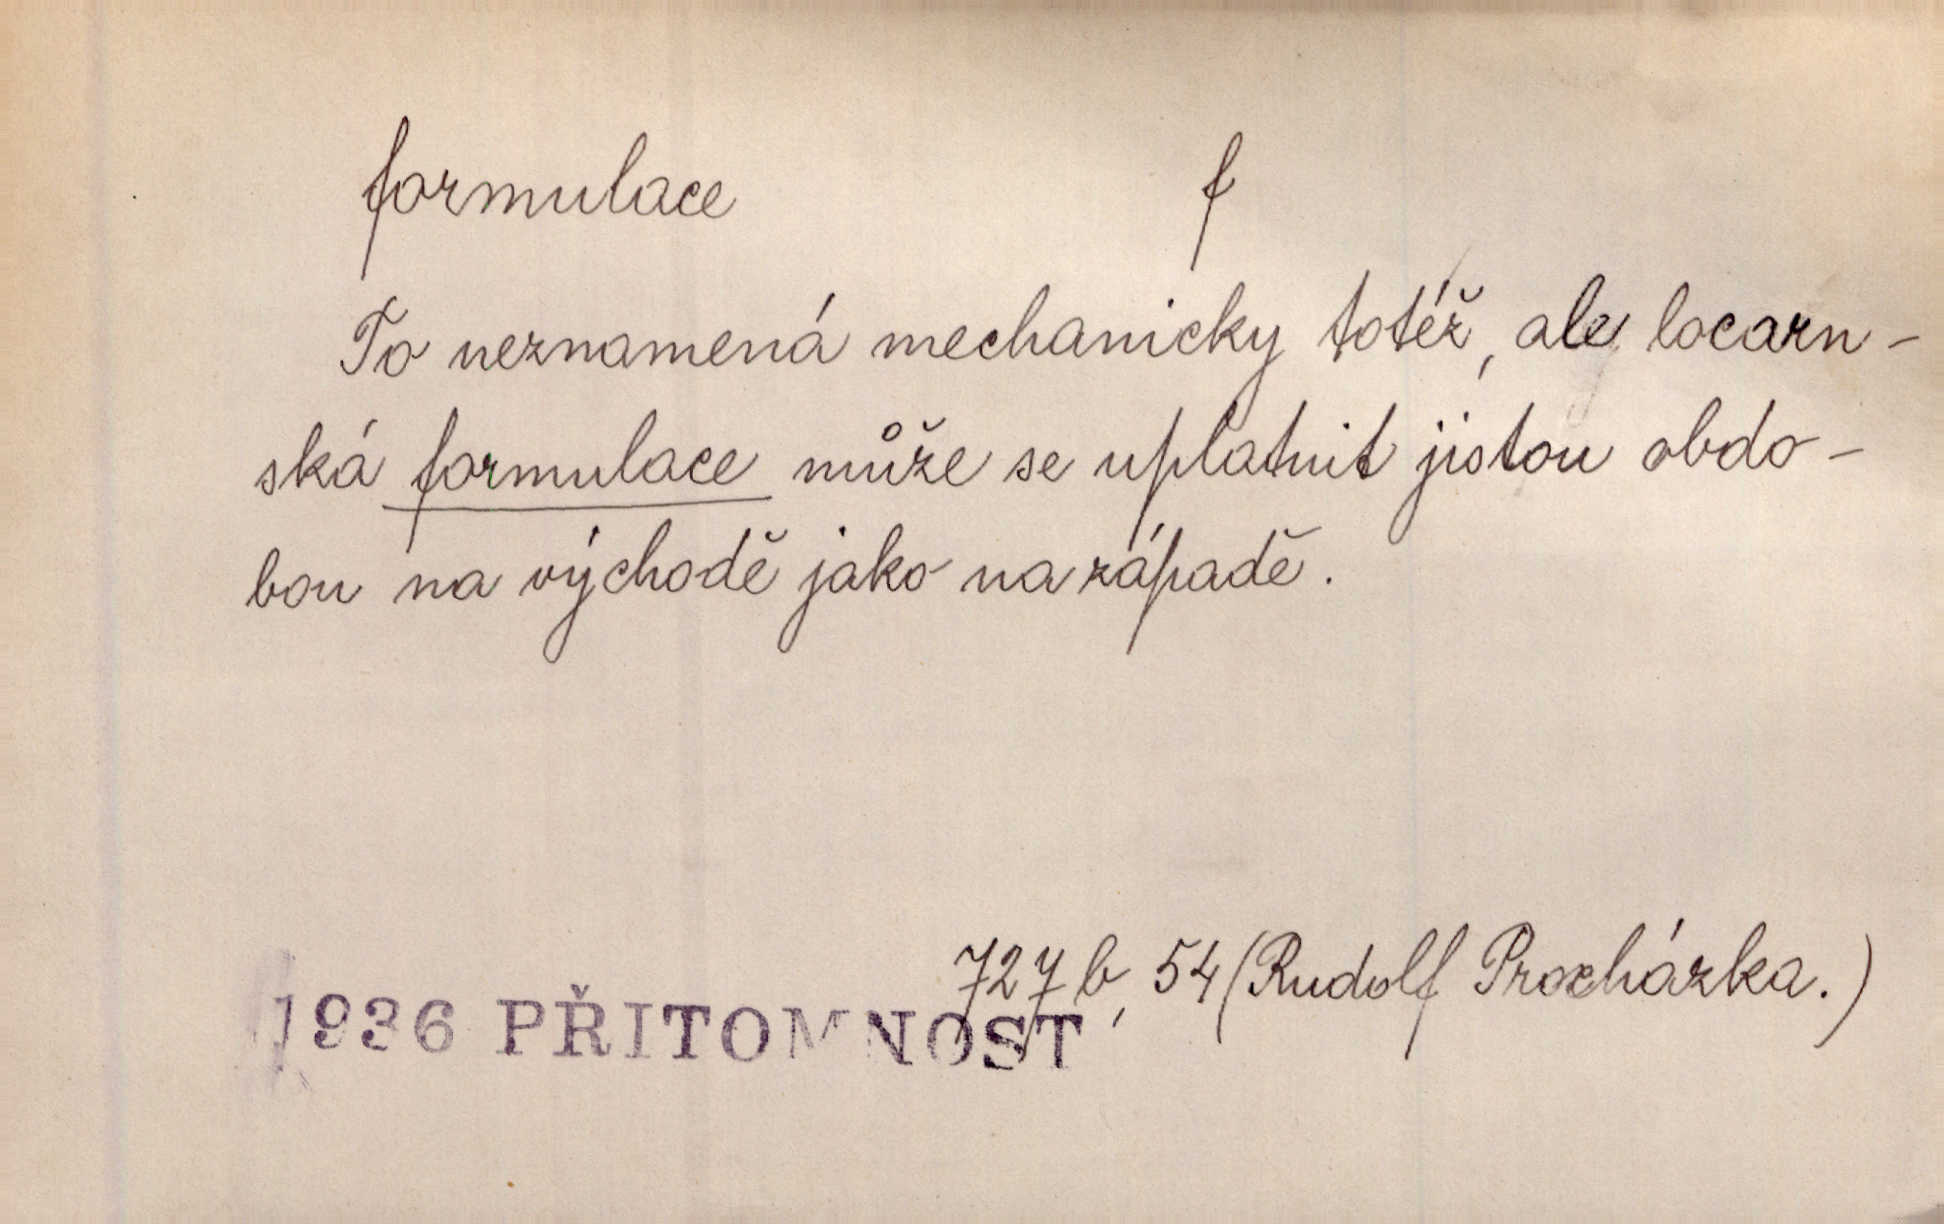 formulace f
To neznamená mechanicky totéž, ale locarn-
ská formulace může se uplatnit jistou obdo-
bou na východě jako na západě.
727 b, 54 (Rudolf Procházka.)
1936 PŘITOMNOST